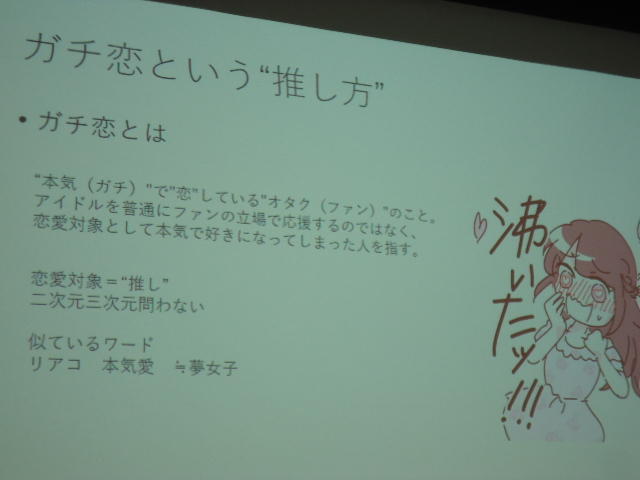 ガチ恋という“推し方”
• ガチ恋とは
“本気（ガチ）”で”恋”している”オタク（ファン）”のこと。
アイドルを普通にファンの立場で応援するのではなく、
恋愛対象として本気で好きになってしまった人を指す。
恋愛対象＝“推し”
二次元三次元問わない
似ているワード
リアコ　本気愛　≒夢女子
沸いたッ!!!